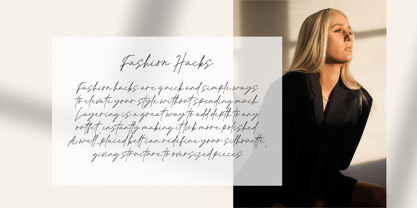 Fashion Hacks
Fashion hacks are quick and simple ways
to elevate your style without spending much.
Layering is a great way to add depth to any
outfit, instantly making it look more polished.
A well-placed belt can redefine your silhouette,
giving structure to oversized pieces.